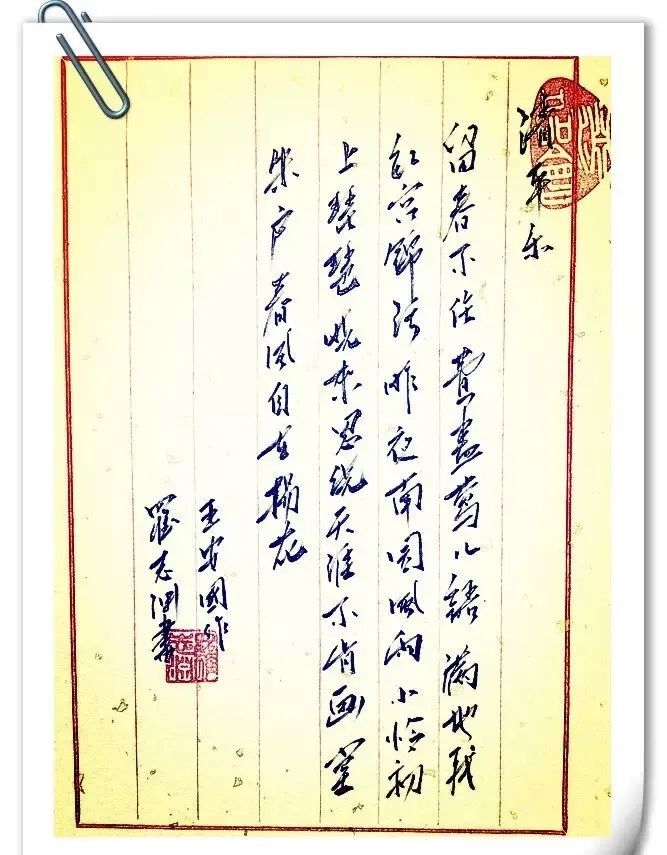 清平乐
留春不住费尽莺儿语满地残
红宫锦污昨夜南园风雨小怜初
上琵琶晓来思绕天涯不肯画堂
朱户春风自在杨花
王安国作
罗志渊书